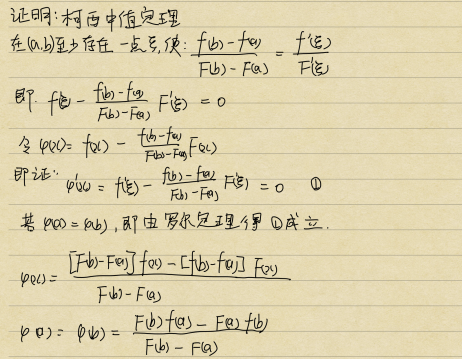 证明:柯西中值定理
在(a,b)至少存在一点ξ,使: \frac{f(b)-f(a)}{F(b)-F(a)} = \frac{f'(ξ)}{F'(ξ)}
即. f'(ξ) - \frac{f(b)-f(a)}{F(b)-F(a)} F'(ξ) = 0
令 φ(x)= f(x) - \frac{f(b)-f(a)}{F(b)-F(a)} F(x)
即证: φ'(x) = f'(ξ) - \frac{f(b)-f(a)}{F(b)-F(a)} F'(ξ) = 0 ①
若 φ(a) = φ(b), 即由罗尔定理得①成立.
φ(x)= \frac{[F(b)-F(a)] f(x) - [f(b)-f(a)] F(x)}{F(b)-F(a)}
φ(a) = φ(b) = \frac{F(b)f(a) - F(a)f(b)}{F(b)-F(a)}